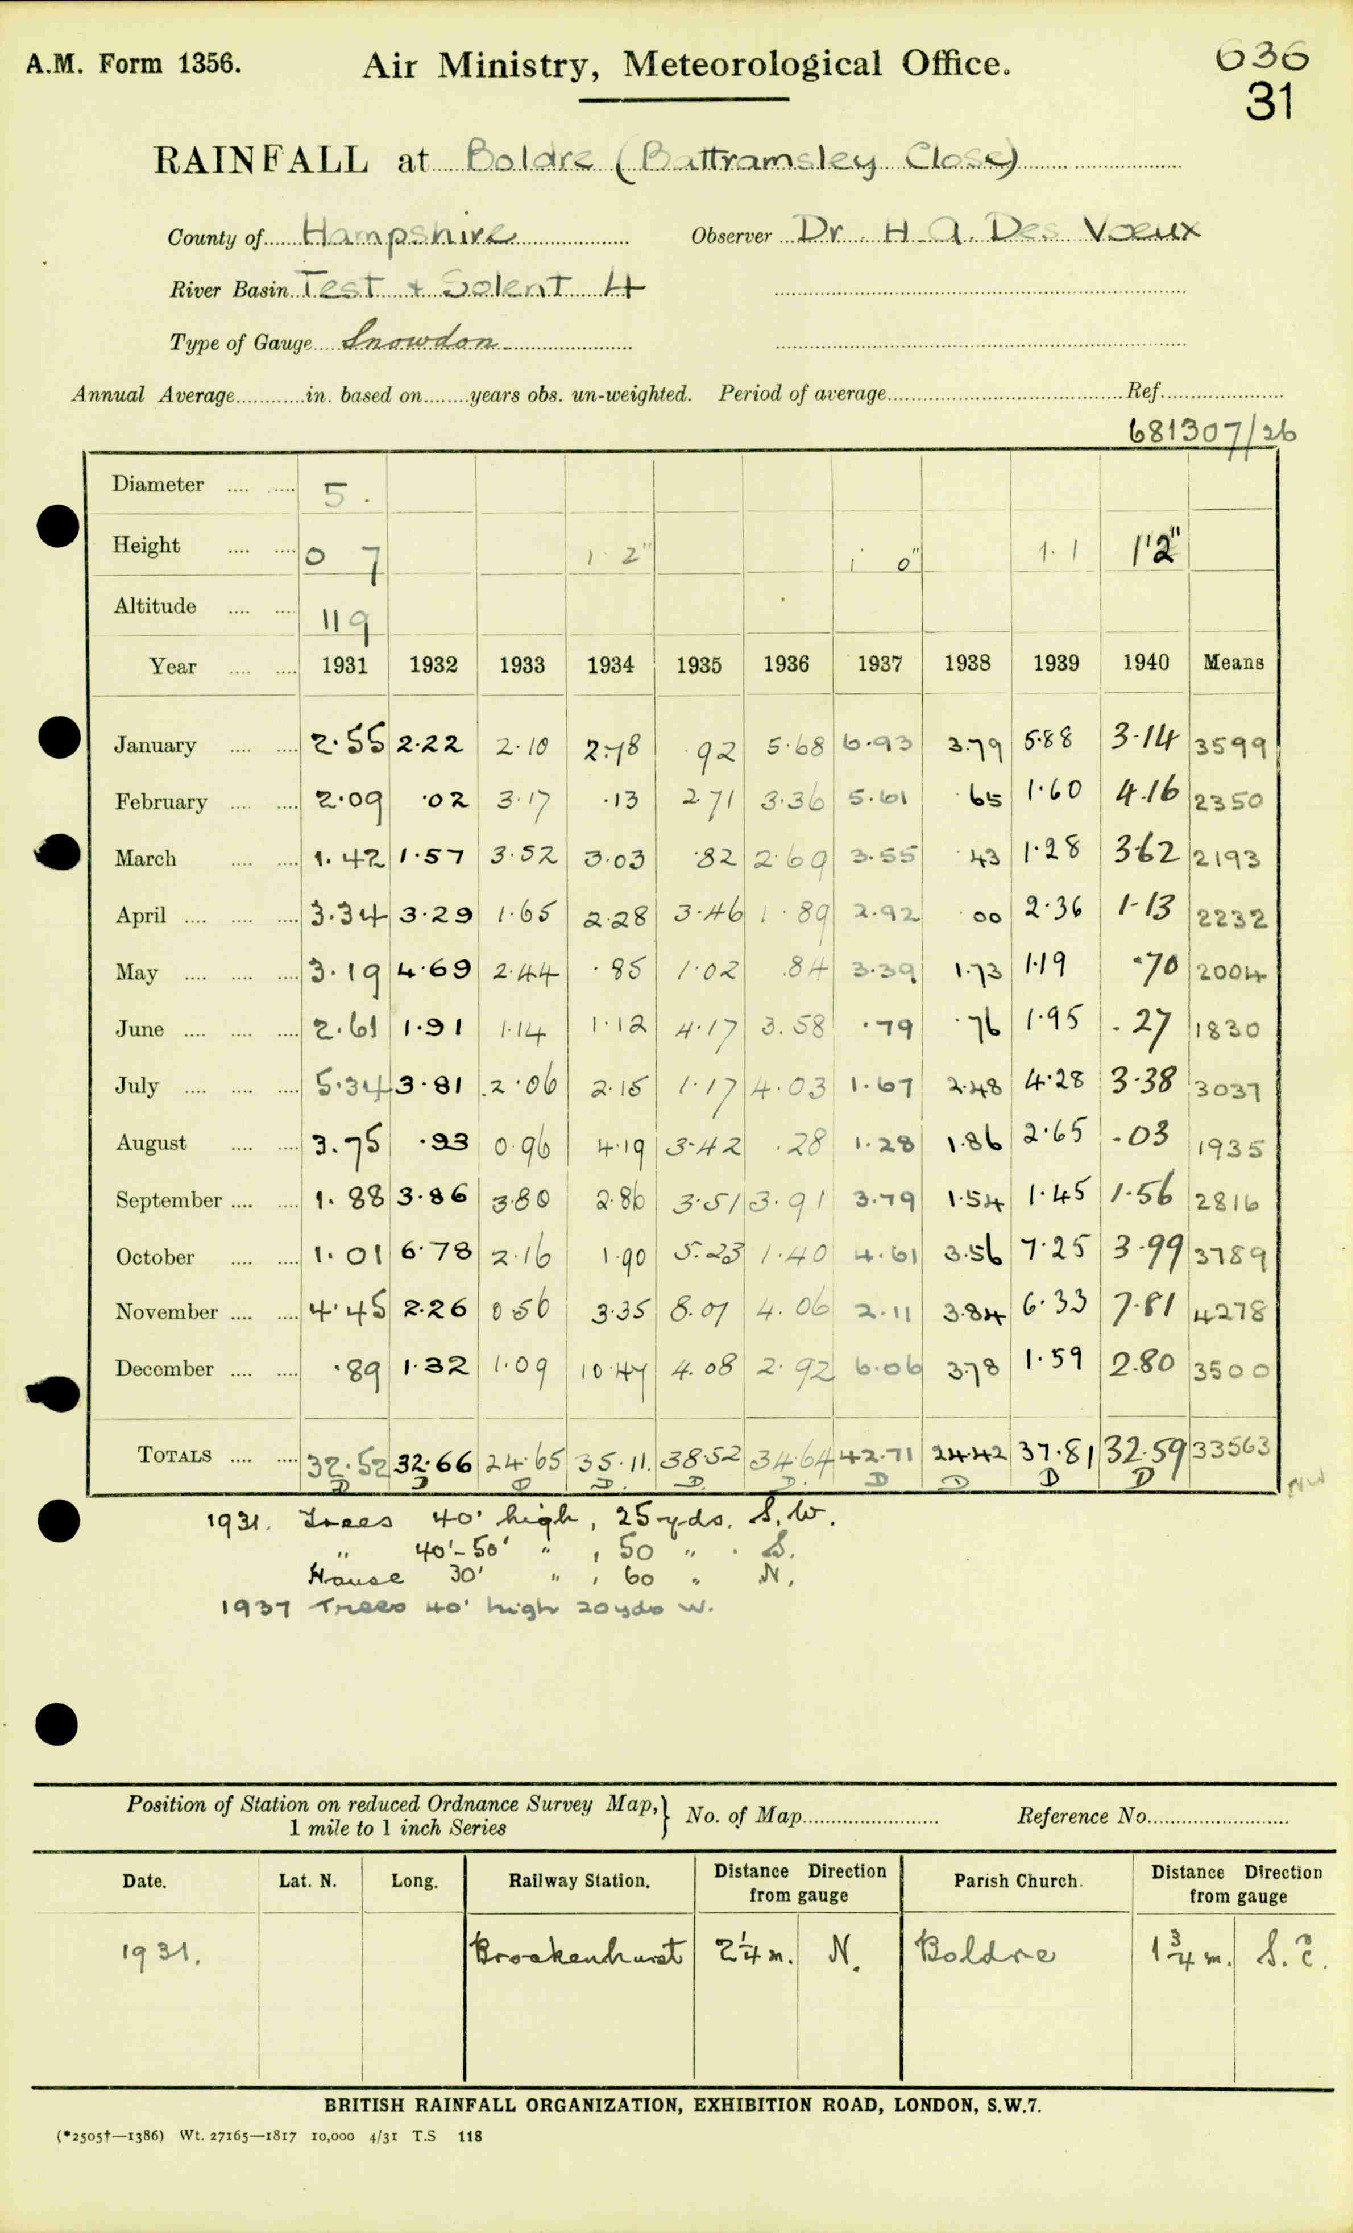 A.M. Form 1356.
Air Ministry, Meteorological Office.
636
31
RAINFALL at Boldre (Battramsley Close)
County of Hampshire Observer Dr. H A. Des Voeux
River Basin Test + Solent 4
Type of Gauge Snowdon
Annual Average in. based on years obs. un-weighted. Period of average Ref
681307/26
Diameter 5.
Height 0 7 1 2" 1 0" 1.1 1'2"
Altitude 119
Year 1931 1932 1933 1934 1935 1936 1937 1938 1939 1940 Means
January 2.55 2.22 2.10 2.78 .92 5.68 6.93 3.79 5.88 3.14 3599
February 2.09 .02 3.17 .13 2.71 3.36 5.61 .65 1.60 4.16 2350
March 1.42 1.57 3.52 3.03 .82 2.69 3.55 .43 1.28 3.62 2193
April 3.34 3.29 1.65 2.28 3.46 1.89 2.92 .00 2.36 1.13 2232
May 3.19 4.69 2.44 .85 1.02 .84 3.39 1.73 1.19 .70 2004
June 2.61 1.91 1.14 1.12 4.17 3.58 .79 .76 1.95 .27 1830
July 5.34 3.81 2.06 2.15 1.17 4.03 1.67 2.48 4.28 3.38 3037
August 3.75 .93 0.96 4.19 3.42 .28 1.28 1.86 2.65 .03 1935
September 1.88 3.86 3.80 2.86 3.51 3.91 3.79 1.54 1.45 1.56 2816
October 1.01 6.78 2.16 1.90 5.23 1.40 4.61 3.56 7.25 3.99 3789
November 4.45 2.26 0.56 3.35 8.01 4.06 2.11 3.84 6.33 7.81 4278
December .89 1.32 1.09 10.47 4.08 2.92 6.06 3.78 1.59 2.80 3500
TOTALS 32.52 32.66 24.65 35.11 38.52 34.64 42.71 24.42 37.81 32.59 33563
D D D D D D D D D D
1931. Trees 40' high, 25 yds. S.W.
" 40'-50' " , 50 " . S.
House 30' " , 60 " N.
1937 Trees 40' high 20 yds W.
Position of Station on reduced Ordnance Survey Map, } No. of Map Reference No.
1 mile to 1 inch Series
Date. Lat. N. Long. Railway Station. Distance Direction from gauge Parish Church. Distance Direction from gauge
1931. Brockenhurst 2¼ m. N. Boldre 1¾ m. S.E.
BRITISH RAINFALL ORGANIZATION, EXHIBITION ROAD, LONDON, S.W.7.
(*2505†—1386) Wt. 27165—1817 10,000 4/31 T.S 118